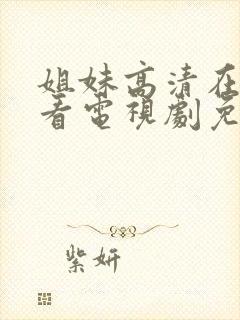 姐妹高清在
看電視劇免
紫妍